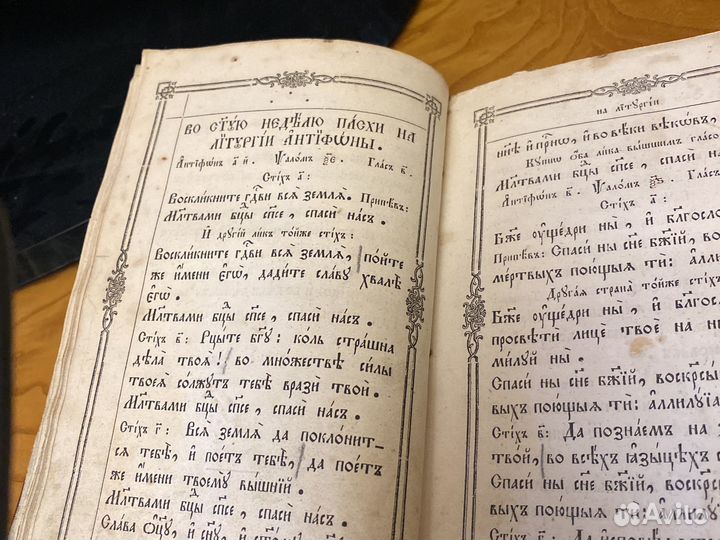 ВО СТ҃УЮ НЕДѢЛЮ ПАСХИ НА
ЛІТУРГІИ АНТІФѠНЫ.
Антіфѡнъ а҃ й. Ѱаломъ ѯ҃е. Гласъ в҃.
Стіхъ а҃:
Воскликните гдⷭ҇ви всѧ землѧ. Припѣвъ:
Мл҃твами бцⷣы сп҃се, спаси насъ.
И другій ликъ тойже стіхъ:
Воскликните гдⷭ҇ви всѧ землѧ, пойте
же имени єгѡ̀, дадите славу хвалѣ
єгѡ̀.
Мл҃твами бцⷣы сп҃се, спаси насъ.
Стіхъ в҃: Рцыте бг҃у: коль страшна
дѣла твоѧ! во множествѣ силы
твоеѧ солжутъ тебѣ врази твои.
Мл҃твами бцⷣы сп҃се, спаси насъ.
Стіхъ г҃: Всѧ землѧ да поклонит-
сѧ тебѣ, и поетъ тебѣ, да поетъ
же имени твоему вышній.
Мл҃твами бцⷣы сп҃се, спаси насъ.
Слава ѻц҃у, и сн҃у, и ст҃
НА ЛІТУРГІИ
нѣ и приснѡ, и во вѣки вѣкѡвъ,
Купнѡ ѻба лика вышшимъ гласо
Мл҃твами бцⷣы сп҃се, спаси на
Антіфѡнъ в҃. Ѱаломъ Гласъ
Стіхъ а҃:
Бж҃е ущедри ны, и благосло
Припѣвъ: Спаси ны сн҃е бж҃ій, во
мертвыхъ поющыѧ ти: алли
Другаѧ страна тойже сті
Бж҃е ущедри ны, и благос
просвѣти лице твое на н
милуй ны.
Спаси ны сн҃е бж҃ій, воскрⷭ҇сы
выхъ поющыѧ ти: аллилуіа
Стіхъ в҃: Да познаемъ на
твой, во всѣхъ ꙗзыцѣхъ с
Спаси ны сн҃е бж҃ій, воскрⷭ҇
выхъ поющыѧ ти: аллилу
Avito